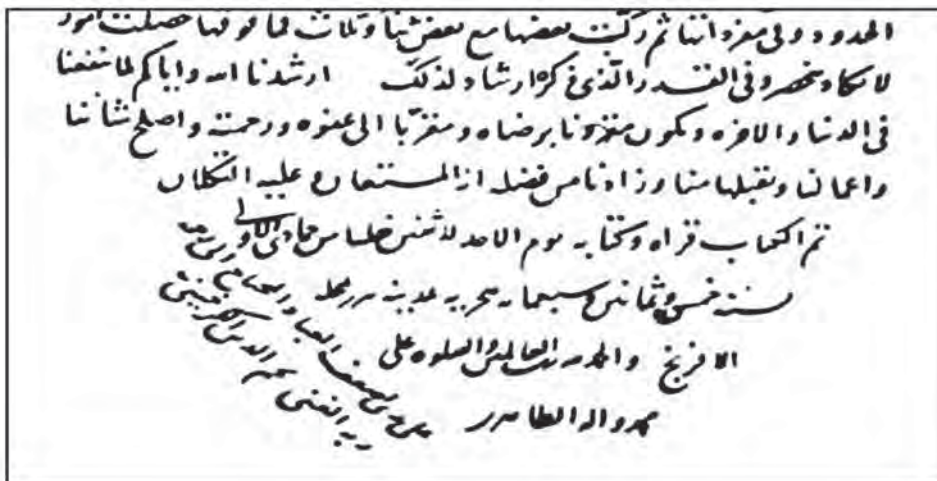 الحدود وفى مفرداتنا ثم ركبت بعضها مع بعض ثنا وثلاث فما فوقها حصلت امور
لا تكاد تنحصر وفى القدر الذى ذكرنا ارشاد لذلك ارشدنا الله واياكم لما ينفعنا
فى الدنيا والاخره ويكون مقرونا برضاه ومقربا الى عفوه ورحمته واصلح شاننا
واعمالنا وتقبلها منا وزادنا من فضله انه المستعان وعليه التكلان
تم الكتاب قراه وكتابه يوم الاحد لاثنتين خلتا من جمادى الاولى
سنه خمس وثمانين وسبعمايه هجريه بمدينه
الافرنج والحمد لله رب العالمين والصلوه على
محمد واله الطاهرين
على يدى اضعف العباد المحتاج الى رحمه
ربه الغنى نجم الدين